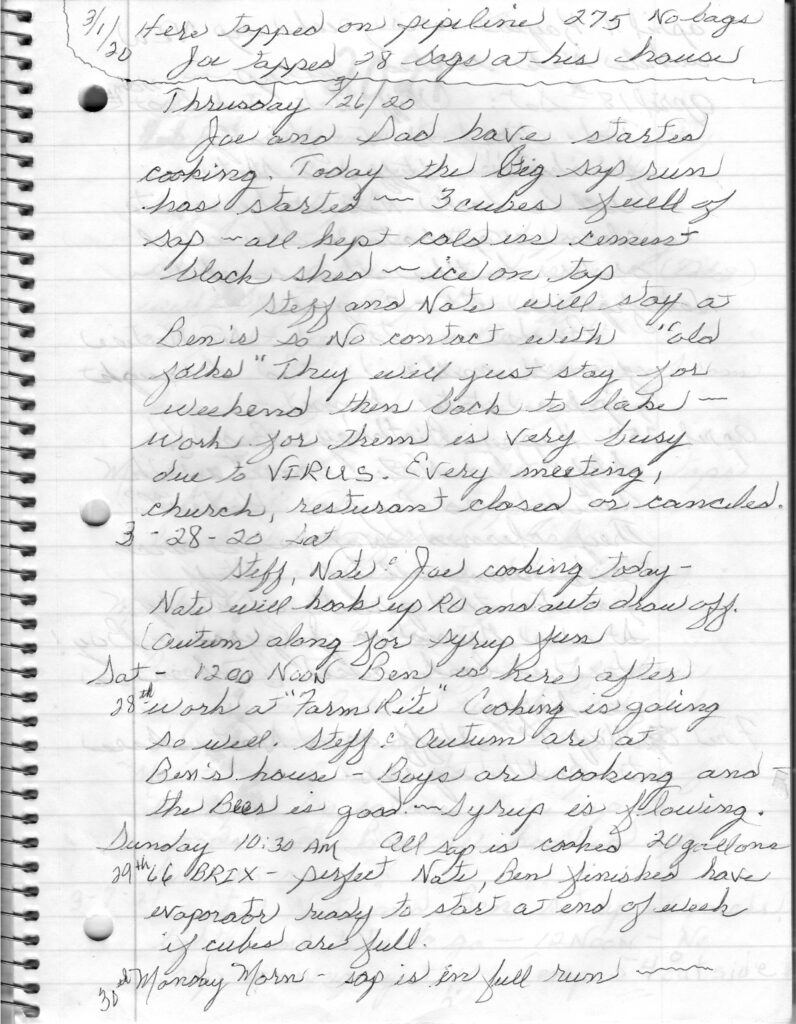 3/1/20 Here tapped on pipeline 275 No bags
Joe tapped 28 bags at his house
Thrusday 3/26/20
Joe and Dad have started
cooking. Today the Big sap run
has started ~ 3 cubes full of
sap ~ all kept cold in cement
block shed ~ ice on top
Steff and Nate will stay at
Ben's so No contact with "old
folks" They will just stay for
weekend then back to lake ~
work for them is very busy
due to VIRUS. Every meeting,
church, resturant closed or canceled.
3-28-20 Sat
Steff, Nate & Joe cooking today -
Nate will hook up RO and auto draw off.
(Autum along for syrup fun
Sat - 1200 NOON Ben is here after
28th work at "Farm Rite" Cooking is going
so well. Steff & Autum are at
Ben's house - Boys are cooking and
the Beer is good. ~ Syrup is flowing.
Sunday 10:30 AM All sap is cooked 20 gallons
29th 66 BRIX - perfect Nate, Ben finished have
evaporator ready to start at end of week
if cubes are full.
30th Monday Morn - sap is in full run ~~~